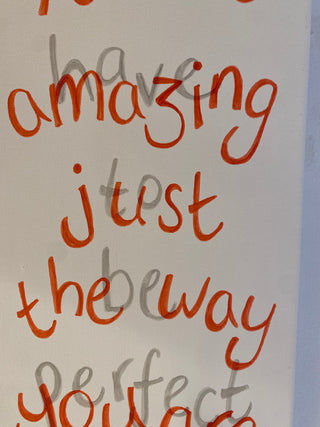 have
amazing
to
just
be
the way
perfect
you are